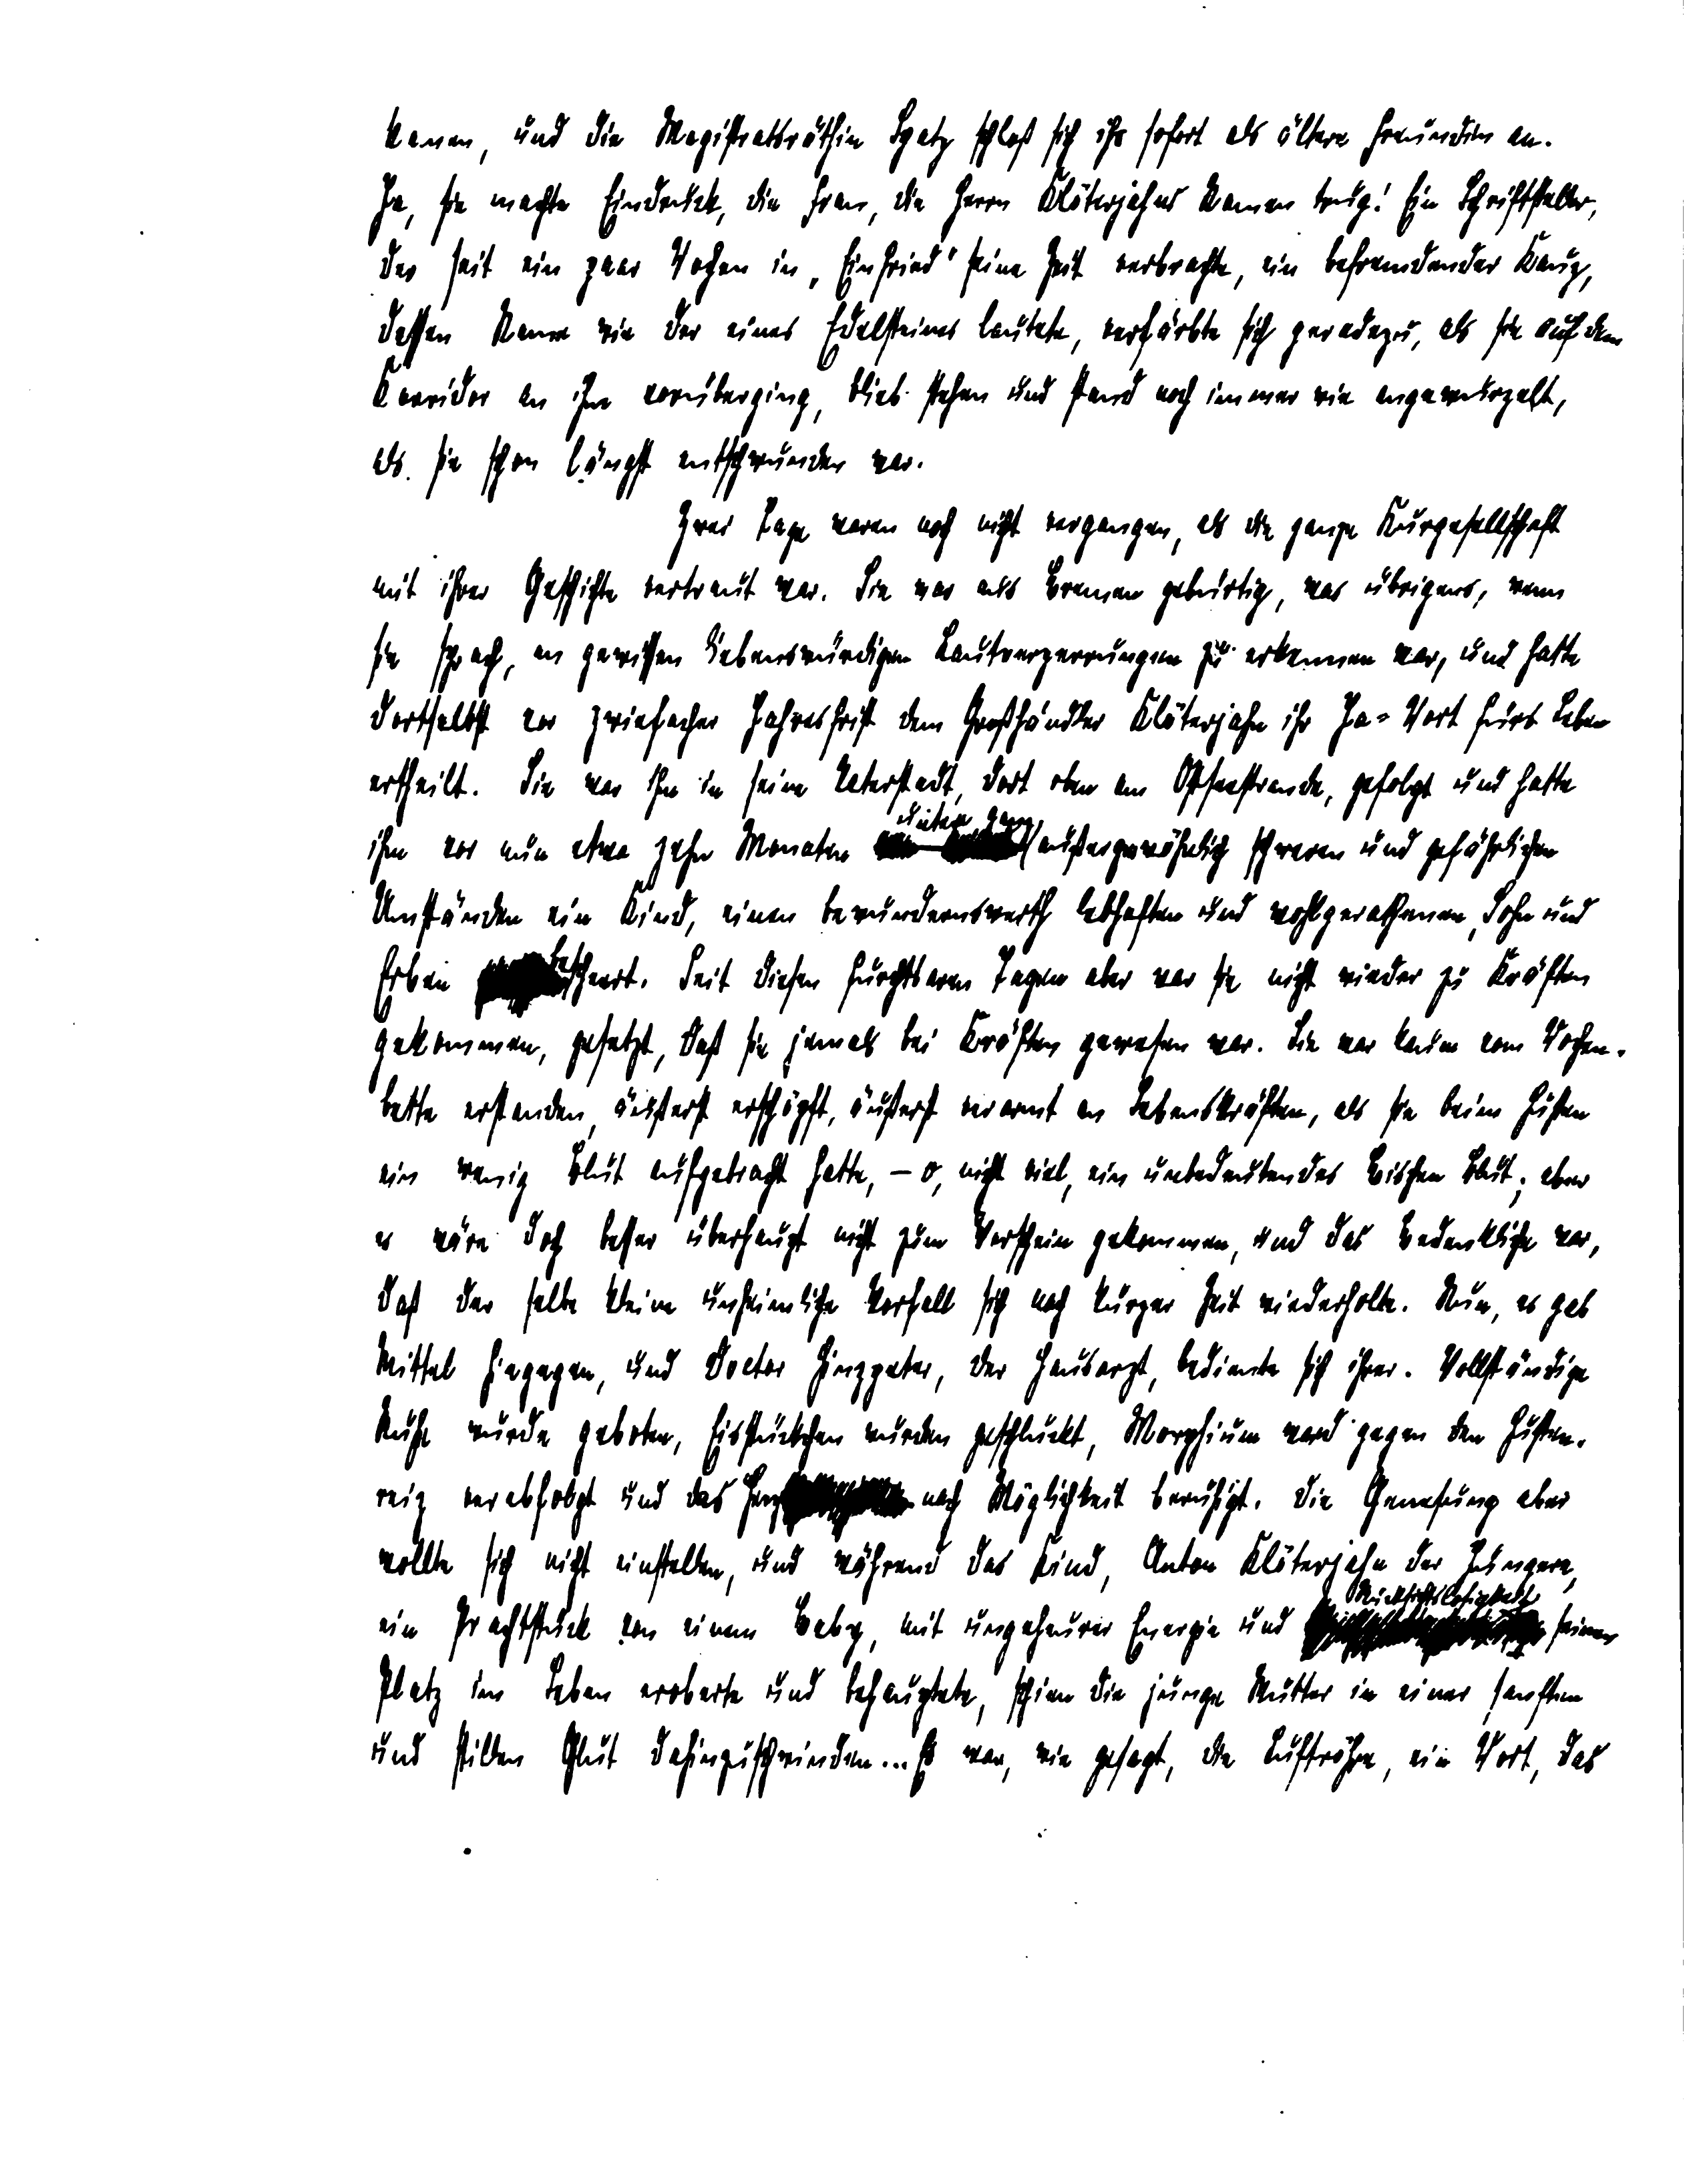 kamen, und die Magistratsräthin Spatz schloß sich ihr sofort als ältere Freundin an.
Ja, sie machte Eindruck, die Frau, die Herrn Klöterjahns Namen trug! Ein Schriftsteller,
der seit ein paar Wochen in „Einfried" seine Zeit verbrachte, ein befremdender Kauz,
dessen Name wie der eines Edelsteines lautete, verfärbte sich geradezu, als sie auf dem
Korridor an ihm vorüberging, blieb stehen und stand noch immer wie angewurzelt,
als sie schon längst entschwunden war.
Zwei Tage waren noch nicht vergangen, als die ganze Kurgesellschaft
mit ihrer Geschichte vertraut war. Sie war aus Bremen gebürtig, was übrigens, wenn
sie sprach, an gewissen liebenswürdigen Lautverzerrungen zu erkennen war, und hatte
dortselbst vor zwiefacher Jahresfrist dem Großhändler Klöterjahn ihr Ja-Wort fürs Leben
ertheilt. Sie war ihm in seine Vaterstadt, dort oben am Ostseestrande, gefolgt und hatte
ihm vor nun etwa zehn Monaten unter ganz außergewöhnlich schweren und gefährlichen
Umständen ein Kind, einen bewundernswerth lebhaften und wohlgerathenen Sohn und
Erben bescheert. Seit diesen furchtbaren Tagen aber war sie nicht wieder zu Kräften
gekommen, gesetzt, daß sie jemals bei Kräften gewesen war. Sie war kaum vom Wochen-
bette erstanden, äußerst erschöpft, äußerst verarmt an Lebenskräften, als sie beim Husten
ein wenig Blut aufgebracht hatte, – o, nicht viel, ein unbedeutendes Bischen Blut; aber
es wäre doch besser überhaupt nicht zum Vorschein gekommen, und das Bedenkliche war,
daß der selbe kleine unheimliche Vorfall sich nach kurzer Zeit wiederholte. Nun, es gab
Mittel hiegegen, und Doctor Hinzpeter, der Hausarzt, bediente sich ihrer. Vollständige
Ruhe wurde geboten, Eisstückchen wurden geschluckt, Morphium ward gegen den Husten-
reiz verabfolgt und das Herz nach Möglichkeit beruhigt. Die Genesung aber
wollte sich nicht einstellen, und während das Kind, Anton Klöterjahn der Jüngere,
ein Prachtstück von einem Baby, mit ungeheurer Energie und Rücksichtslosigkeit seinen
Platz im Leben eroberte und behauptete, schien die junge Mutter in einer sanften
und stillen Glut dahinzuschwinden... Es war, wie gesagt, die Luftröhre, ein Wort, das